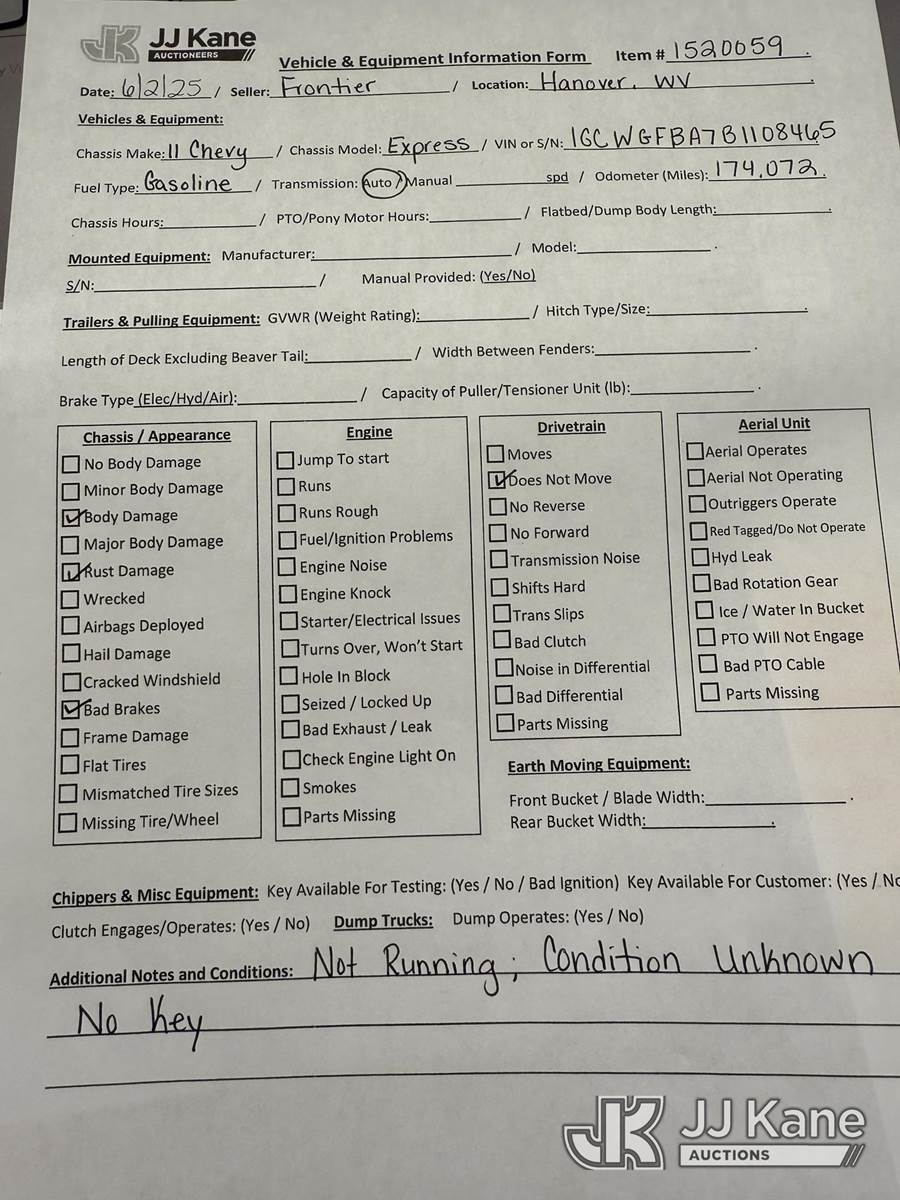 JJ Kane
AUCTIONEERS
Vehicle & Equipment Information Form Item # 1520059 .
Date: 6/2/25 / Seller: Frontier / Location: Hanover, WV .
Vehicles & Equipment:
Chassis Make: 11 Chevy / Chassis Model: Express / VIN or S/N: 1GCWGFBA7B1108465
Fuel Type: Gasoline / Transmission: Auto / Manual spd / Odometer (Miles): 174,072.
Chassis Hours: / PTO/Pony Motor Hours: / Flatbed/Dump Body Length: .
Mounted Equipment: Manufacturer: / Model: .
S/N: / Manual Provided: (Yes/No)
Trailers & Pulling Equipment: GVWR (Weight Rating): / Hitch Type/Size: .
Length of Deck Excluding Beaver Tail: / Width Between Fenders: .
Brake Type (Elec/Hyd/Air): / Capacity of Puller/Tensioner Unit (lb): .
Chassis / Appearance
No Body Damage
Minor Body Damage
Body Damage
Major Body Damage
Rust Damage
Wrecked
Airbags Deployed
Hail Damage
Cracked Windshield
Bad Brakes
Frame Damage
Flat Tires
Mismatched Tire Sizes
Missing Tire/Wheel
Engine
Jump To start
Runs
Runs Rough
Fuel/Ignition Problems
Engine Noise
Engine Knock
Starter/Electrical Issues
Turns Over, Won't Start
Hole In Block
Seized / Locked Up
Bad Exhaust / Leak
Check Engine Light On
Smokes
Parts Missing
Drivetrain
Moves
Does Not Move
No Reverse
No Forward
Transmission Noise
Shifts Hard
Trans Slips
Bad Clutch
Noise in Differential
Bad Differential
Parts Missing
Aerial Unit
Aerial Operates
Aerial Not Operating
Outriggers Operate
Red Tagged/Do Not Operate
Hyd Leak
Bad Rotation Gear
Ice / Water In Bucket
PTO Will Not Engage
Bad PTO Cable
Parts Missing
Earth Moving Equipment:
Front Bucket / Blade Width: .
Rear Bucket Width: .
Chippers & Misc Equipment: Key Available For Testing: (Yes / No / Bad Ignition) Key Available For Customer: (Yes / No
Clutch Engages/Operates: (Yes / No) Dump Trucks: Dump Operates: (Yes / No)
Additional Notes and Conditions: Not Running; Condition Unknown
No Key
JJ Kane
AUCTIONS